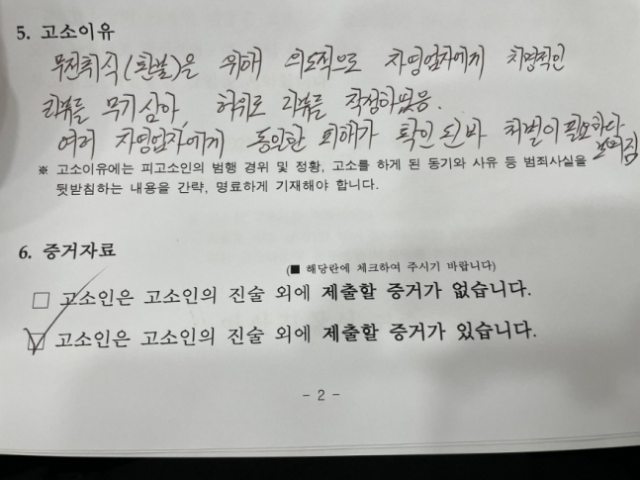 5. 고소이유
무전취식(환불)을 위해 의도적으로 자영업자에게 치명적인
리뷰를 무기삼아, 허위로 리뷰를 작성하였음.
여러 자영업자에게 동일한 피해가 확인된바 처벌이 필요하다
보여짐
※ 고소이유에는 피고소인의 범행 경위 및 정황, 고소를 하게 된 동기와 사유 등 범죄사실을
뒷받침하는 내용을 간략, 명료하게 기재해야 합니다.
6. 증거자료
(■ 해당란에 체크하여 주시기 바랍니다)
□ 고소인은 고소인의 진술 외에 제출할 증거가 없습니다.
☑ 고소인은 고소인의 진술 외에 제출할 증거가 있습니다.
- 2 -